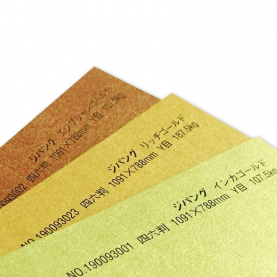 ジパング エジプシャンゴールド
93002 四六判 1091×788mm Y目 107.5kg
ジパング リッチゴールド
NO.190093023 四六判 1091×788mm Y目 187.5kg
ジパング インカゴールド
NO.190093001 四六判 1091×788mm Y目 187.5kg